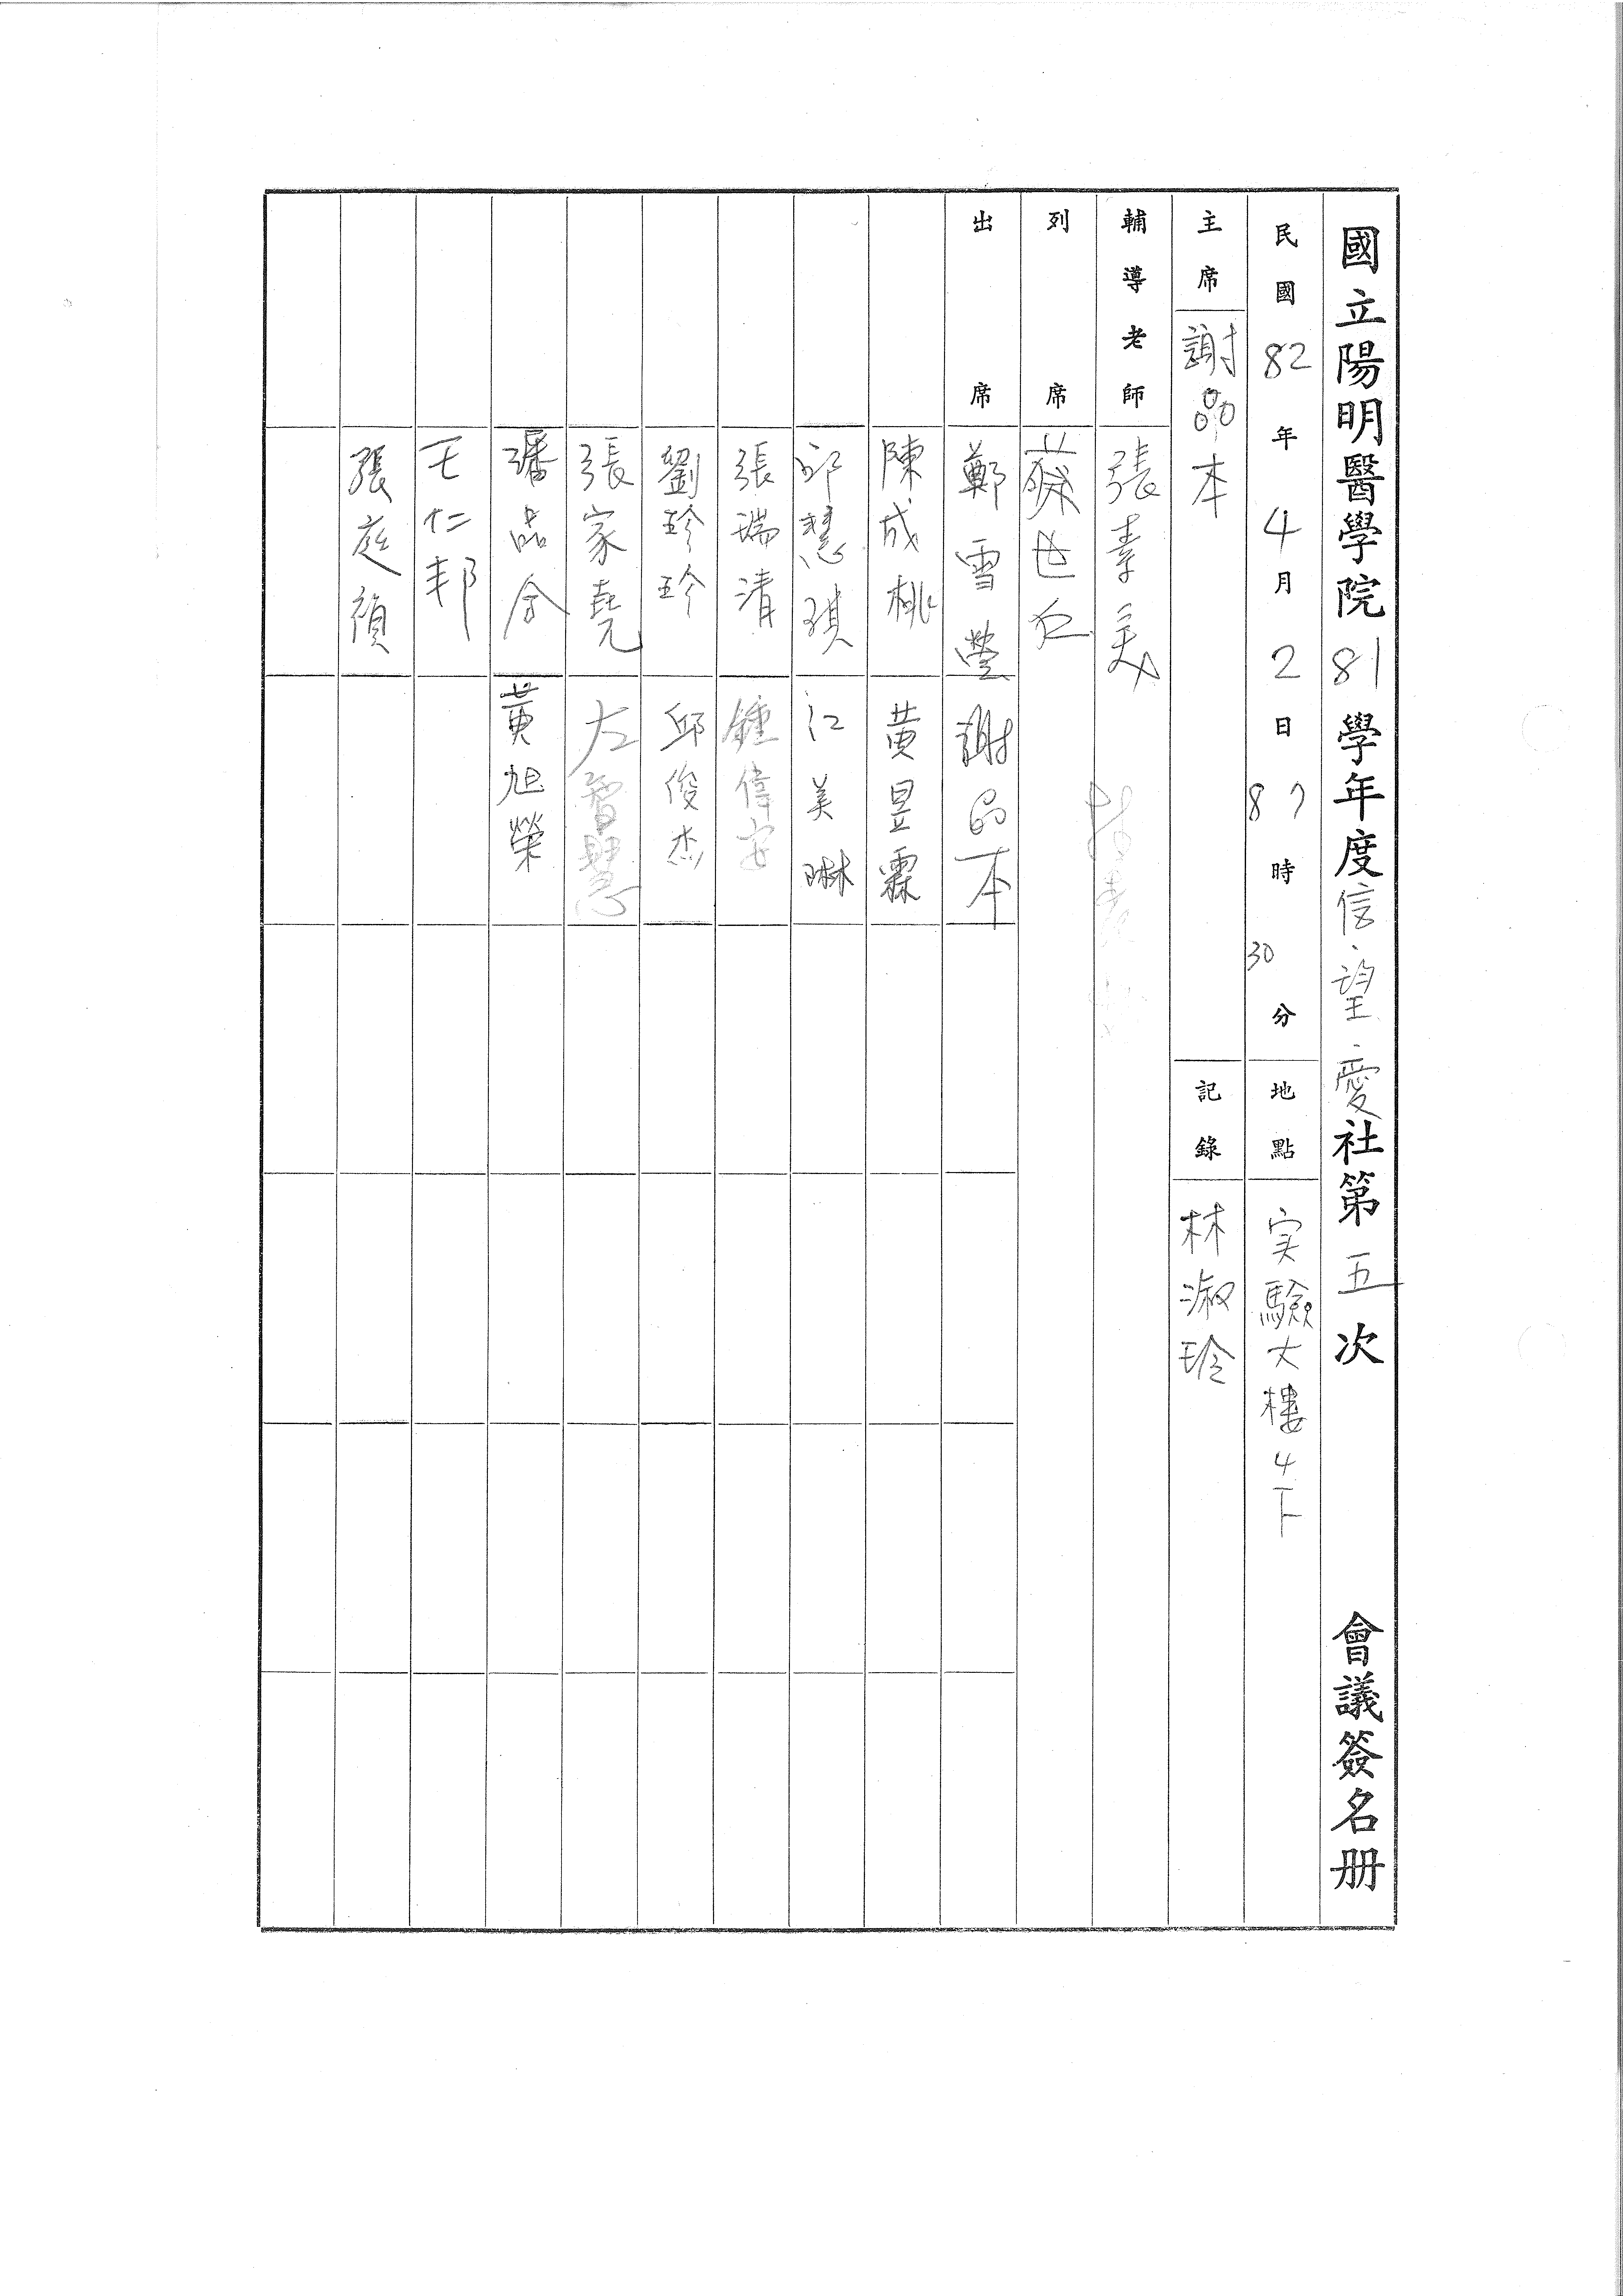 國立陽明醫學院81學年度信、望、愛社第五次 會議簽名册
民國82年4月2日 時30分
地點 実驗大樓4下
主席 謝品本
記錄 林淑玲
輔導老師 張素美
列席 蔡世仁
出席 鄭雪瑩 謝品本
陳成桃 黃昱霖
邱慧琪 江美琳
張瑞清 鍾偉安
劉玲玲 邱俊杰
張家堯 左智慧
潘品合 黃旭榮
王仁邦
張庭禎